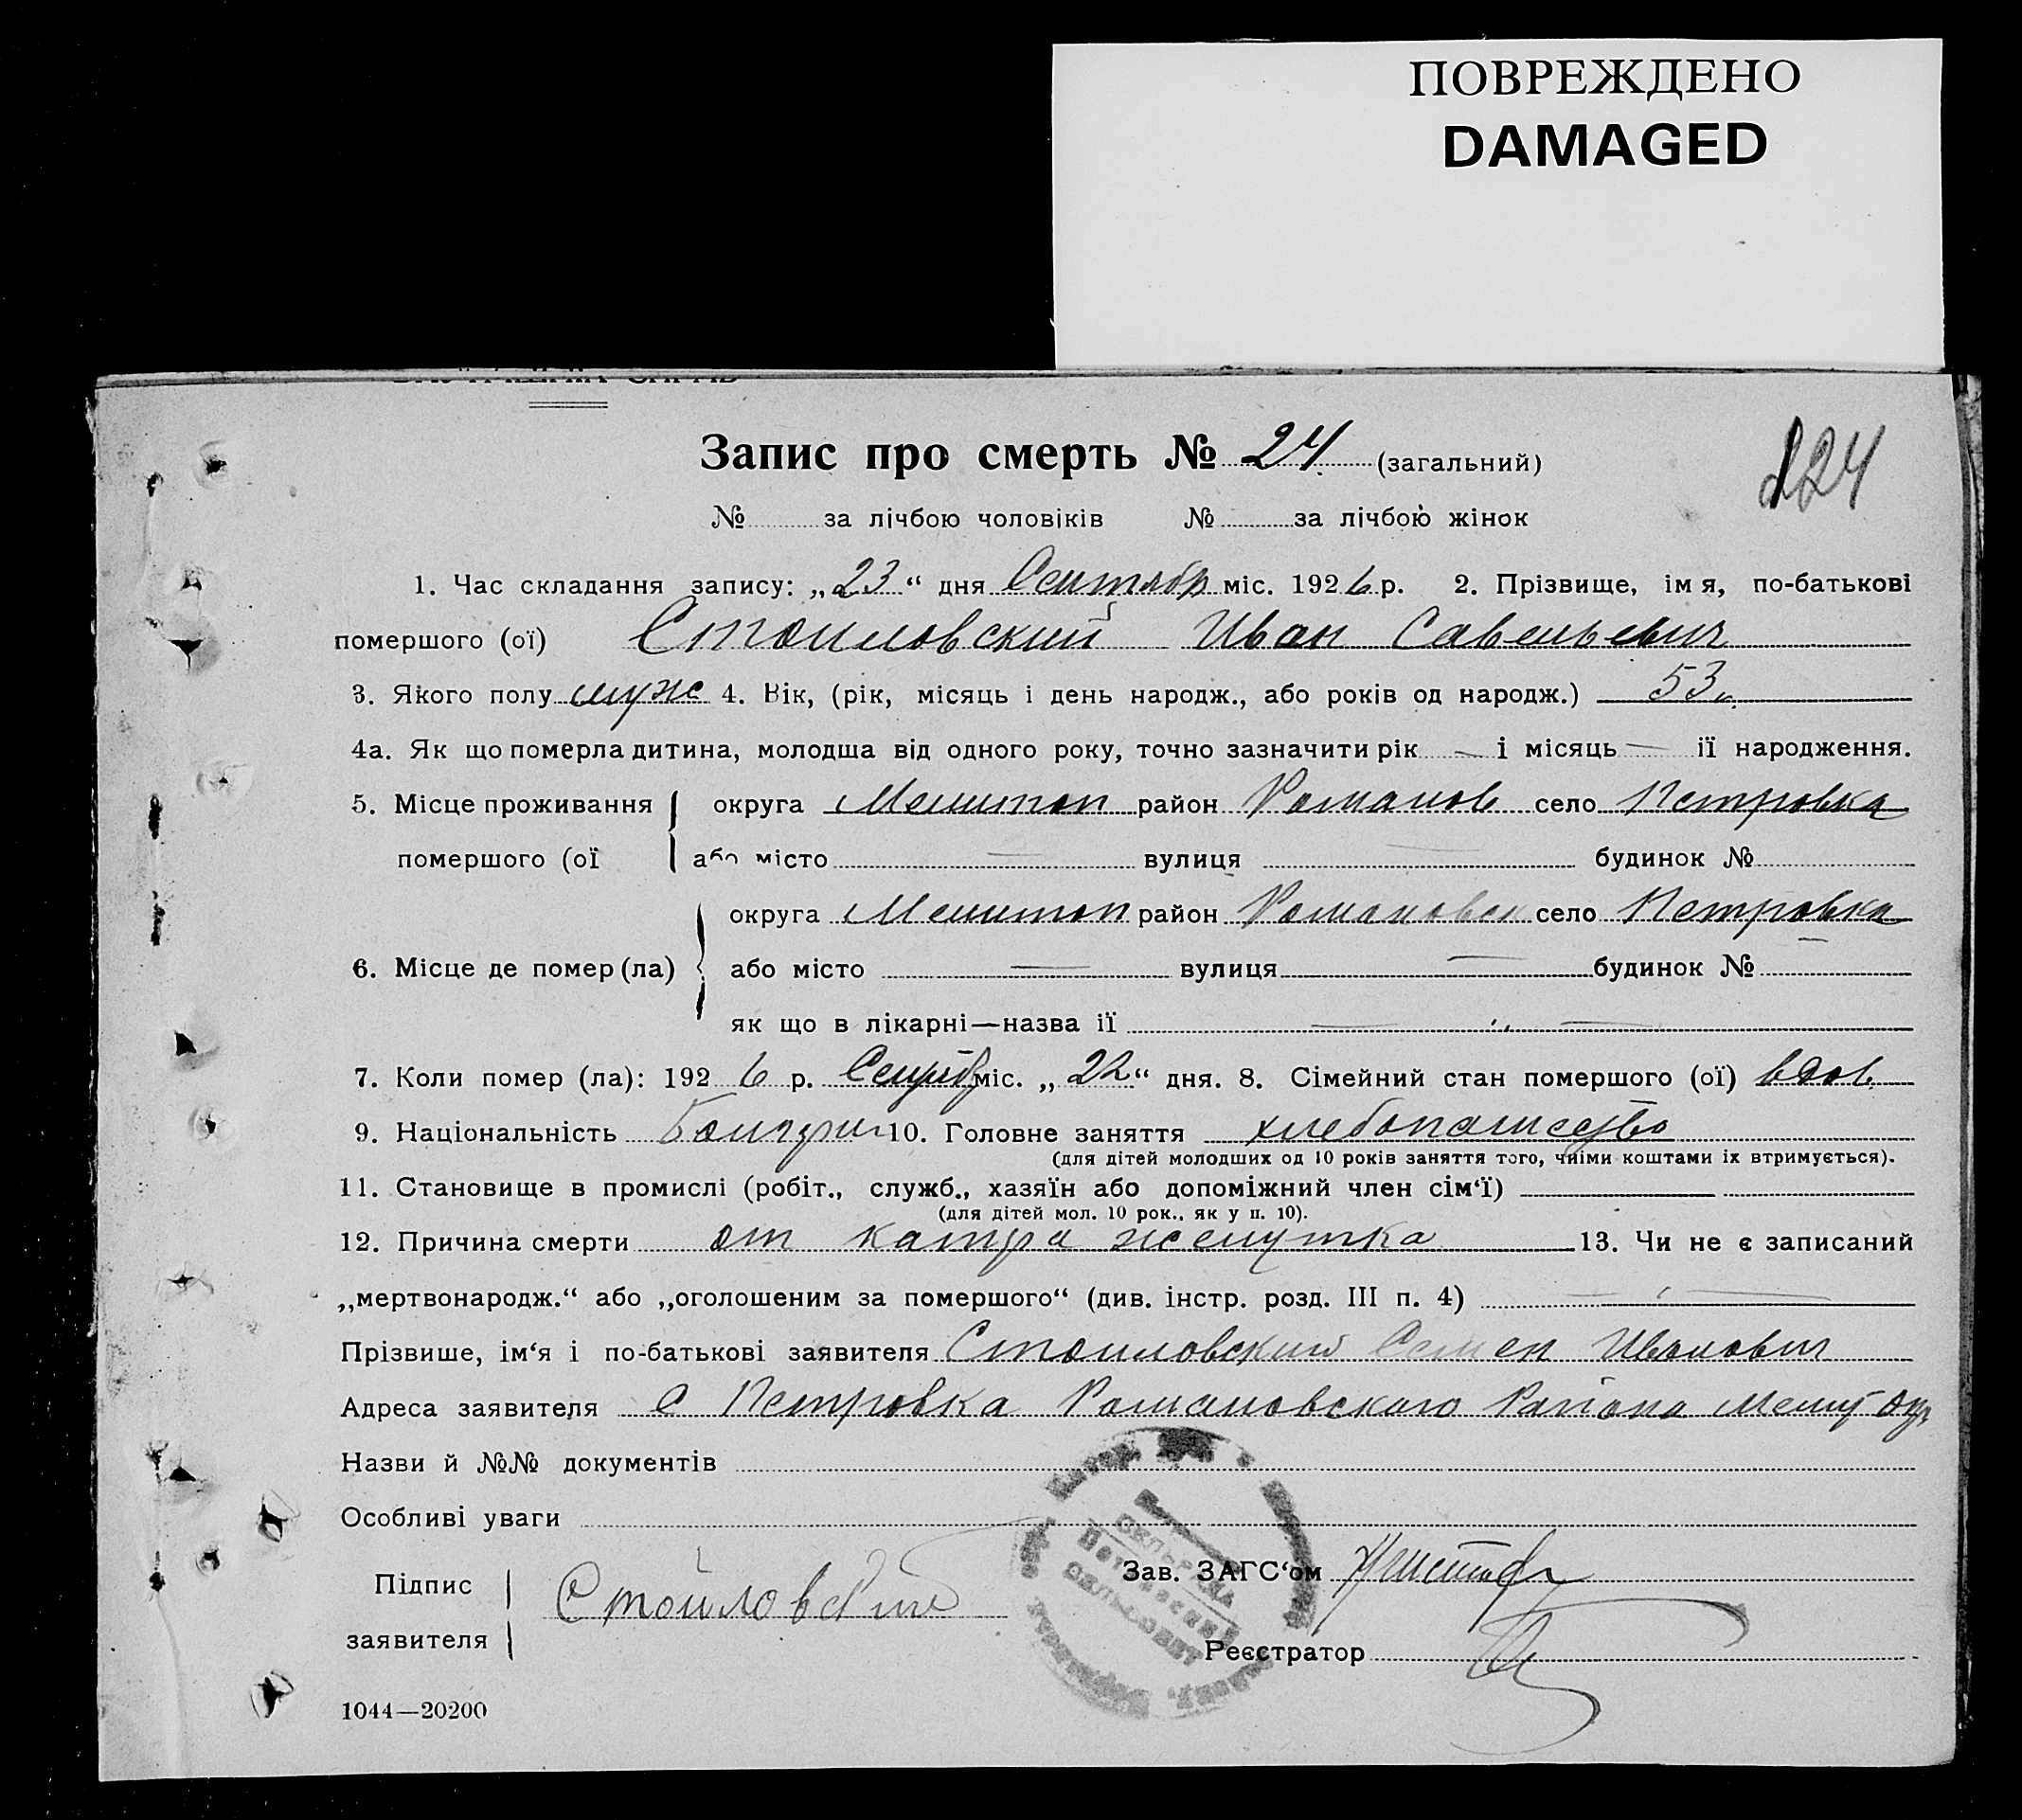 ПОВРЕЖДЕНО
DAMAGED
Запис про смерть № 24 (загальний)
224
№ за лічбою чоловіків № за лічбою жінок
1. Час складання запису: „23“ дня Сентябр міс. 1926 р. 2. Прізвище, імя, по-батькові
помершого (ої) Стоиловский Иван Савельевич
3. Якого полу муж 4. Вік, (рік, місяць і день народж., або років од народж.) 53
4а. Як що померла дитина, молодша від одного року, точно зазначити рік — і місяць — її народження.
5. Місце проживання округа Мелитоп район Романов село Петровка
помершого (ої або місто — вулиця — будинок №
округа Мелитоп район Романовск село Петровка
6. Місце де помер (ла) або місто — вулиця — будинок № —
як що в лікарні—назва її — „ —
7. Коли помер (ла): 1926 р. міс. „22“ дня. 8. Сімейний стан помершого (ої) вдов
9. Національність Болгарин 10. Головне заняття хлебопашество
(для дітей молодших од 10 років заняття того, чиїми коштами іх втримується).
11. Становище в промислі (робіт., служб., хазяїн або допоміжний член сім‘ї)
(для дітей мол. 10 рок., як у п. 10).
12. Причина смерти от катара желутка 13. Чи не є записаний
„мертвонародж.“ або „оголошеним за помершого“ (див. інстр. розд. III п. 4) —
Прізвише, ім‘я і по-батькові заявителя Стоиловский Семен Иванович
Адреса заявителя С Петровка Романовскаго Района Мелит Окр
Назви й №№ документів
Особливі уваги
Зав. ЗАГС‘ом
Підпис
Стойловский
заявителя
Реєстратор
1044—20200